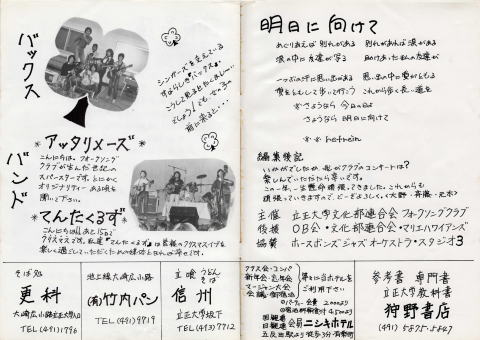 バックス
バンド
シンガーズを支えている
すばらしき"バックス"。
こうして見るとたくましい…
でしょう！でも、女の子の
前に来ると…
*アッタリメーズ*
こんにちは。フォークソング
クラブが生んだ世紀の
スーパースターです。とにかく
オリジナリティーある唄を
聞いて下さい。
*てんたくるず*
こんにちは！あと15日で
クリスマスです。私達"てんたくるず"は皆様のクリスマスイブを
楽しく過ごしていただくための使者となれれば幸せです。
そば処
更科
大崎広小路立正大学入口
TEL (491) 1796
池上線大崎広小路
(有)竹内パン
TEL (491) 9719
立喰うどんそば
信州
立正大学坂下
TEL (493) 7712
クラス会・コンパ
新年会・忘年会
マージャン大会
会議・御宿泊
等々に当ホテルを
ご利用下さい
パーティー会費 2000より
日観連
会員 ニシキホテル
五反田駅より徒歩3分
明日に向けて
めぐりあえば別れがある 別れがあれば涙がある
涙の中に友達が写る
一ッ一ツの汗に思い出がある
愛をともして歩いて行こう これから歩く長い道を
※さようなら 今日の日は
さようなら 明日に向けて
※※ refrein
編集後記
いかがでしたか、我がクラブのコンサートは？
楽しんでいただけたら幸いです。
この一年、一生懸命頑張ってきました。これからも
頑張っていきますので、どーぞよろしく。(大野・斉藤・元木)
主催 立正大学文化部連合会フォークソングクラブ
後援 OB会・文化部連合会・マリエハワイアンズ
協賛 ホースボンズジャズオーケストラ・スタジオ3
参考書 専門書
立正大学教科書
狩野書店
(491) 5875-5867